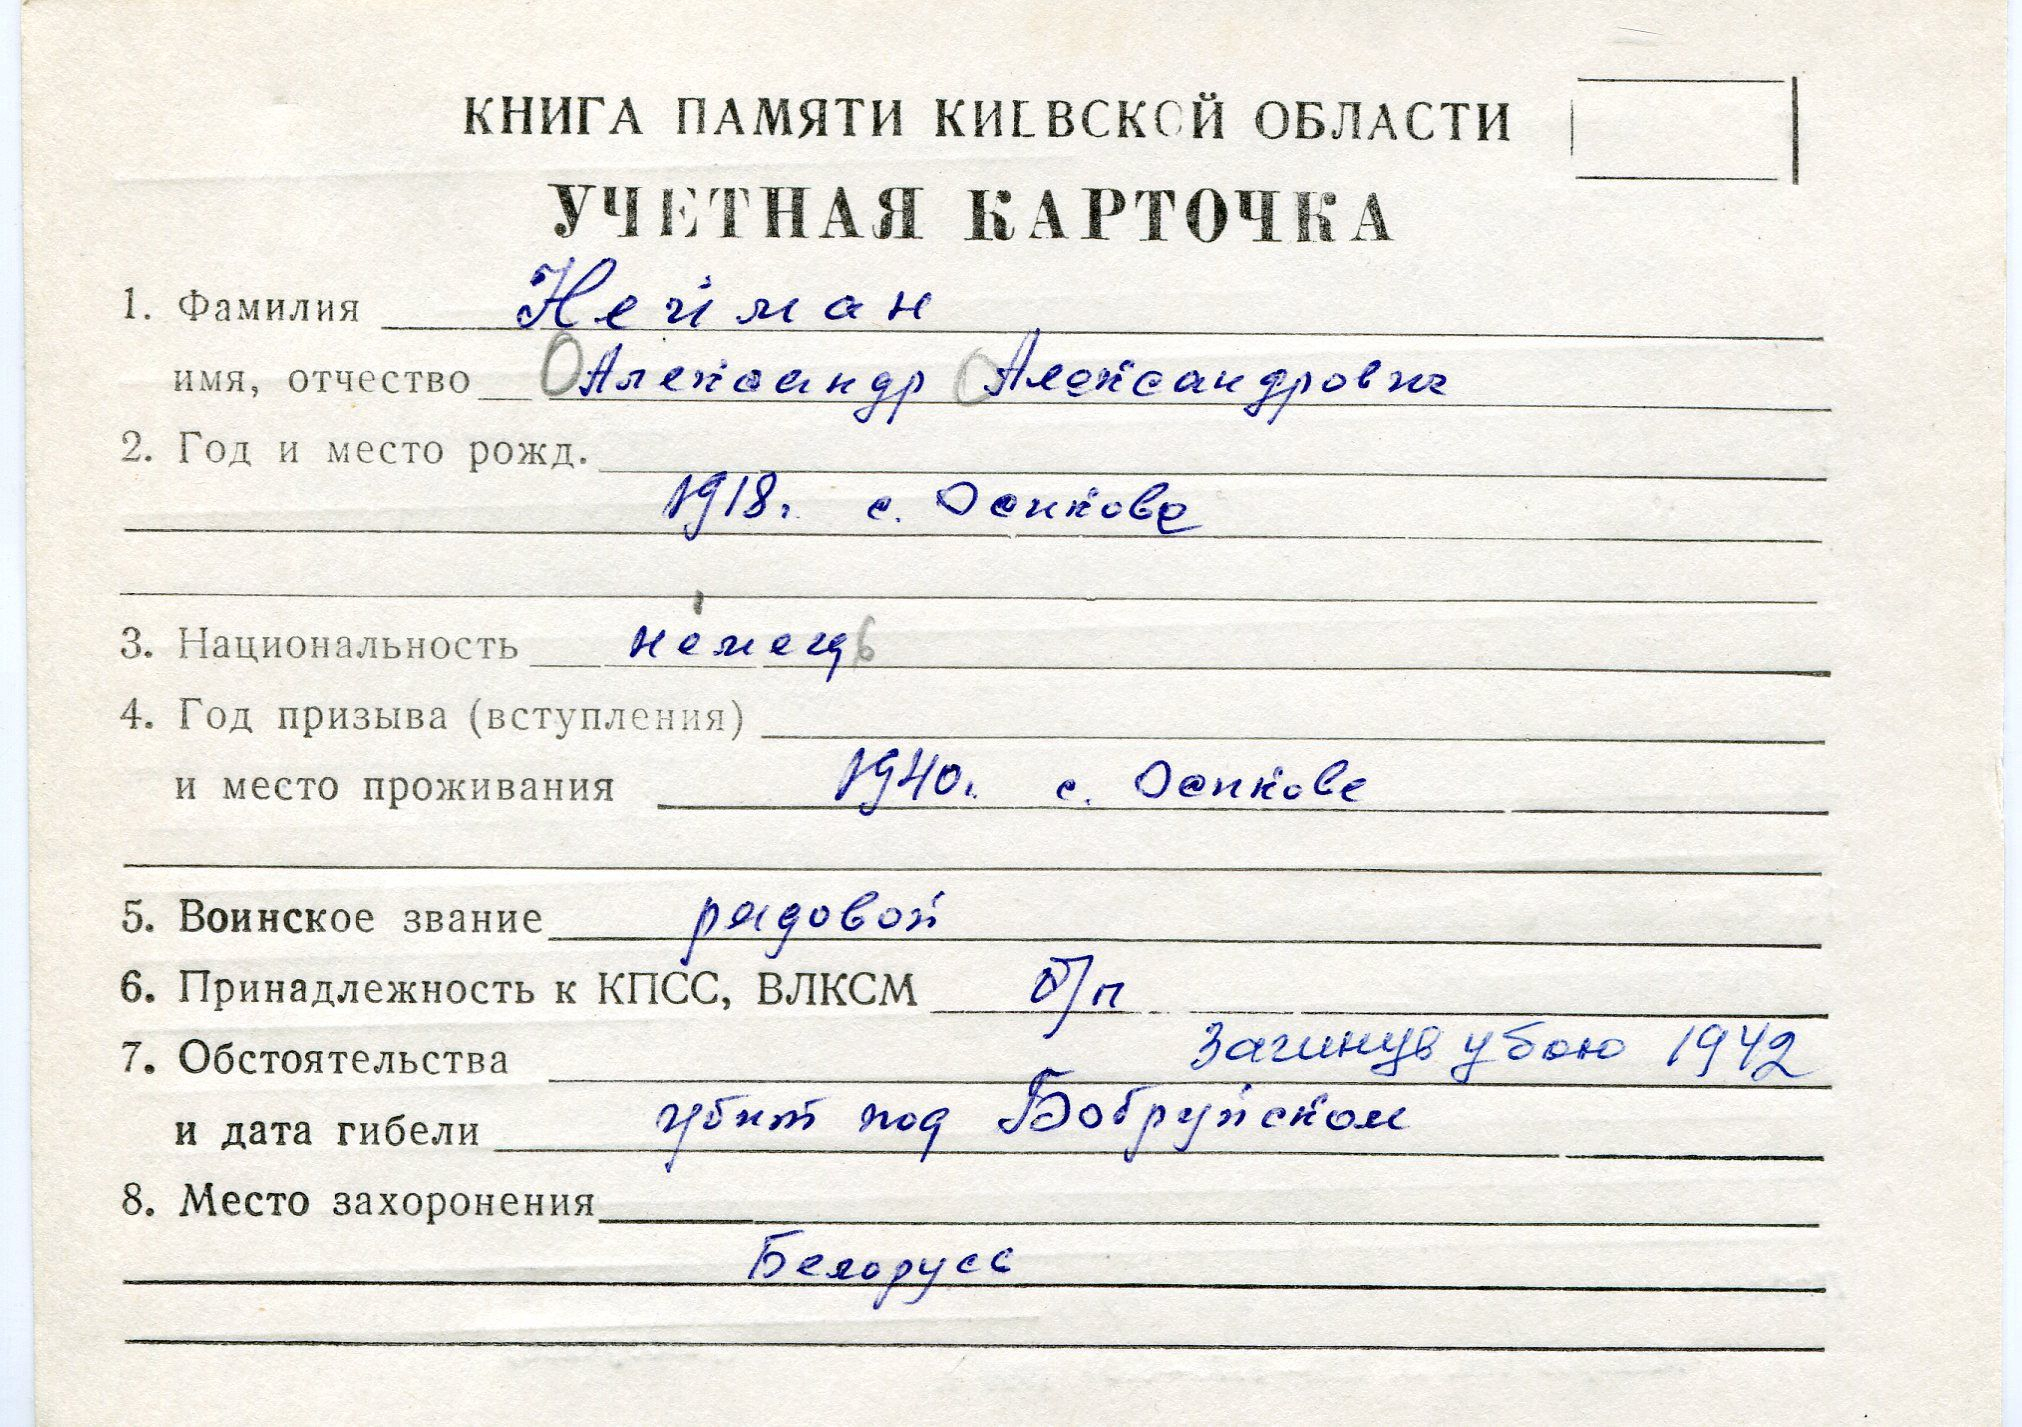 КНИГА ПАМЯТИ КИЕВСКОЙ ОБЛАСТИ
УЧЕТНАЯ КАРТОЧКА
1. Фамилия Нейман
имя, отчество О Александр О Александрович
2. Год и место рожд.
1918г. с. Осиково
3. Национальность немець
4. Год призыва (вступления)
и место проживания 1940г. с. Осикове
5. Воинское звание рядовой
6. Принадлежность к КПСС, ВЛКСМ б/п
7. Обстоятельства Загинув у бою 1942
и дата гибели убит под Бобруйском
8. Место захоронения
Белорусь